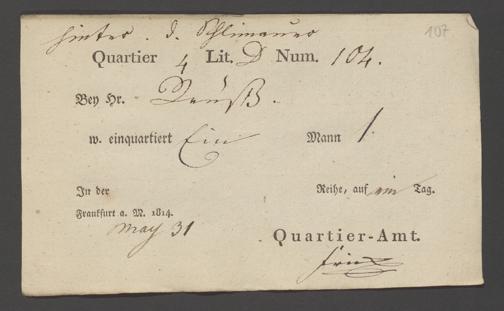 107
hinter d. Schlimauer
Quartier 4 Lit. D Num. 104.
Bey Hr.
w. einquartiert Ein Mann 1
In der Reihe, auf ein Tag.
Frankfurt a. M. 1814.
May 31
Quartier-Amt.